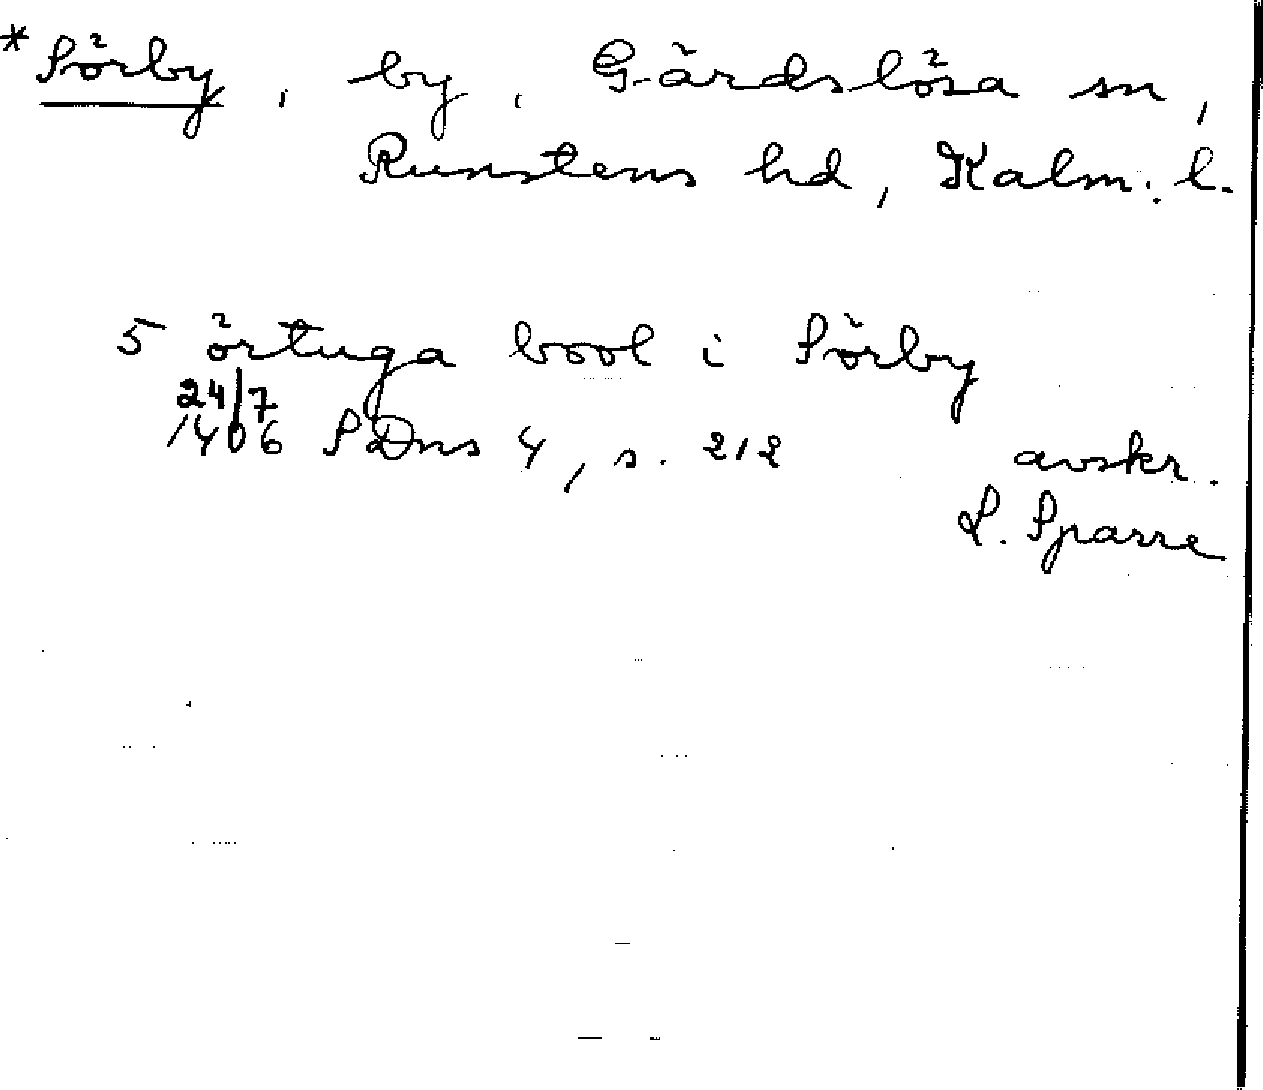 *Sörby, by, Gärdslösa sn,
Runstens hd, Kalm. l.
5 örtuga bool i Sörby
24/7
1406 SDns 4, s. 212
avskr.
L. Sparre